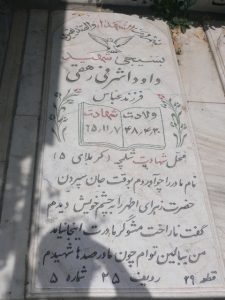 بسیجی شهید
داود اشرفی رهقی
فرزند عباس
ولادت شهادت
۴۸،۴،۳ ۶۵،۱۱،۷
محل شهادت شلمچه (کربلای ۵)
نام مادر را چو آوردم بوقت جان سپردن
حضرت زهرای اطهر را بچشم خویش دیدم
گفت ناراحت مشو گر مادرت اینجا نیامد
من ببالین تو ام چون مادر صدها شهیدم
قطعه ۲۹ ردیف ۲۵ شماره ۵